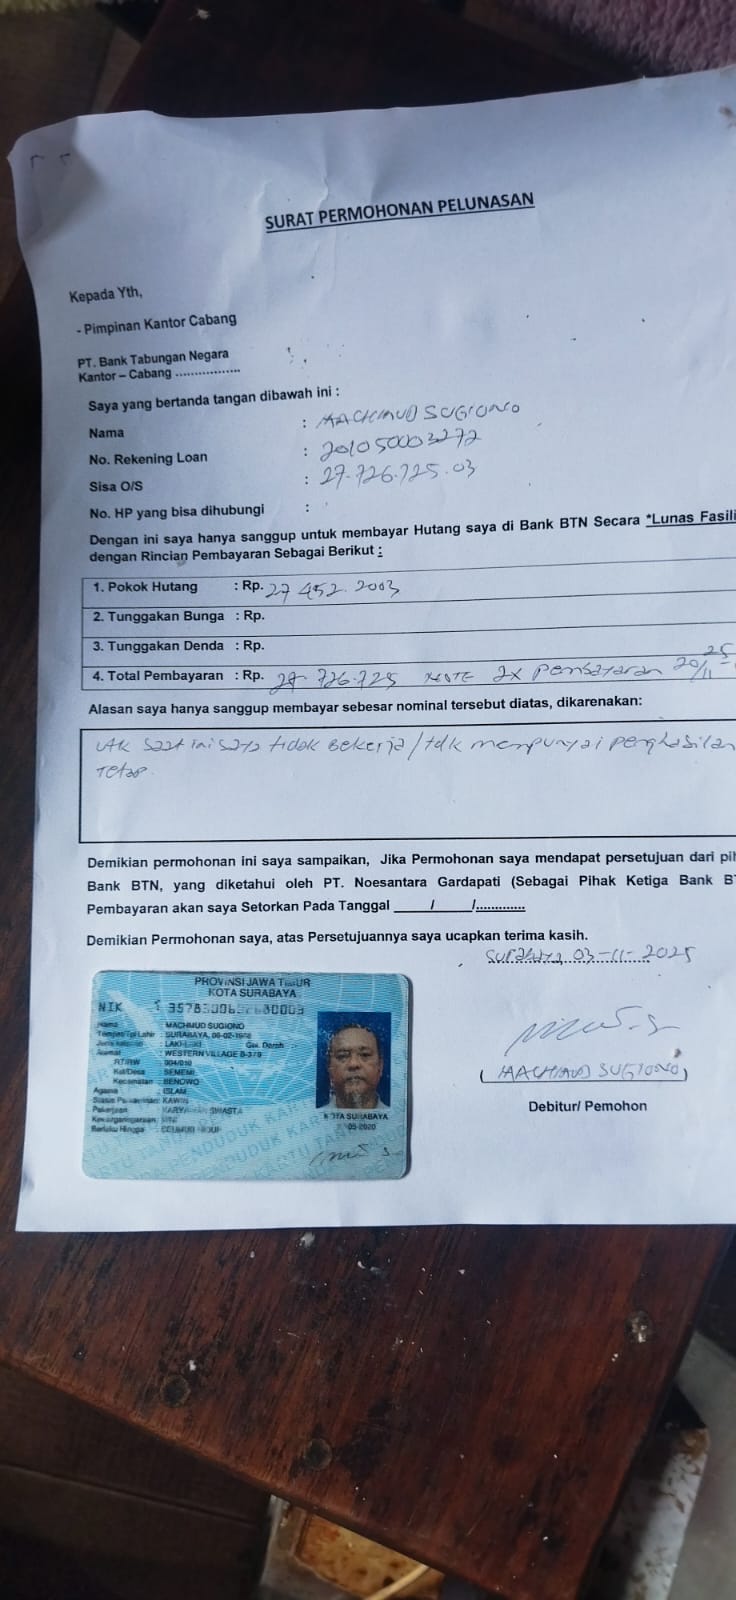 SURAT PERMOHONAN PELUNASAN
Kepada Yth,
- Pimpinan Kantor Cabang
PT. Bank Tabungan Negara
Kantor – Cabang .................
Saya yang bertanda tangan dibawah ini :
Nama : MACHMUD SUGIONO
No. Rekening Loan : 20105000 3272
Sisa O/S : 27.726.725.03
No. HP yang bisa dihubungi :
Dengan ini saya hanya sanggup untuk membayar Hutang saya di Bank BTN Secara *Lunas Fasili
dengan Rincian Pembayaran Sebagai Berikut :
1. Pokok Hutang : Rp. 27 452. 2003
2. Tunggakan Bunga : Rp.
3. Tunggakan Denda : Rp.
4. Total Pembayaran : Rp. 27. 726.725 2x pembayaran 20/11 - 25
Alasan saya hanya sanggup membayar sebesar nominal tersebut diatas, dikarenakan:
saat ini saya tidak Bekerja / tdk mempunyai penghasilan
Tetap
Demikian permohonan ini saya sampaikan, Jika Permohonan saya mendapat persetujuan dari pih
Bank BTN, yang diketahui oleh PT. Noesantara Gardapati (Sebagai Pihak Ketiga Bank BT
Pembayaran akan saya Setorkan Pada Tanggal ____/____/............
Demikian Permohonan saya, atas Persetujuannya saya ucapkan terima kasih.
Surabaya, 03-11-2025
PROVINSI JAWA TIMUR
KOTA SURABAYA
NIK
Nama : MACHMUD SUGIONO
Tempat/Tgl Lahir : SURABAYA,
Jenis Kelamin : LAKI-LAKI Gol. Darah
Alamat : WESTERN VILLAGE
RT/RW : 004/010
Kel/Desa : SEMEMI
Kecamatan : BENOWO
Agama : ISLAM
Status Perkawinan: KAWIN
Pekerjaan : KARYAWAN SWASTA
Kewarganegaraan : WNI
Berlaku Hingga : SEUMUR HIDUP
KOTA SURABAYA
05-2020
( MACHMUD SUGIONO )
Debitur/ Pemohon